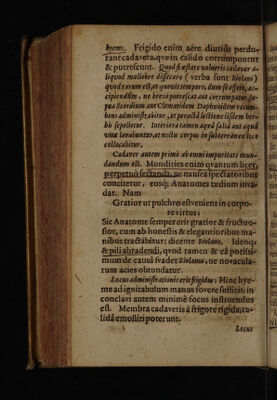 hyems. Frigido enim aëre diutiùs perdu-
rant cadavera, quæ in calido corrumpuntur
& putrescunt. Quod si æstate volueris cadaver a-
liquod muliebre dissecare (verba sunt Riolani)
quod rarum est, at quovis tempore, dum se offert, ac-
cipiendum, ne brevi putrescat aut corrumpatur, su-
pra Scordium aut Clematidem Daphnoidem recum-
bens administrabitur, et peractâ lectione iisdem her-
bis sepelietur. Interiora tamen aquâ salsâ aut aquâ
vitæ lavabuntur, et nocte corpus in subterraneo loco
collocabitur.
Cadaver autem primò ab omni impuritate mun-
dandum est. Mundities enim quantum licet,
perpetuò sectanda, ne nausea spectatoribus
concitetur, eosq; Anatomes tædium inva-
dat. Nam
Gratior ut pulchro est veniens in corpo-
re virtus:
Sic Anatome semper erit gratior & fructuo-
sior, cum ab honestis & elegantioribus ma-
nibus tractabitur: dicente Riolano. Ideoq;
& pili abradendi, quod tamen & eâ potissi-
mum de causâ svadet Riolanus, ne novacula-
rum acies obtundatur.
Locus administrationis erit frigidus: Hinc hye-
me ad ignitabulum manus fovere sufficit: in
conclavi autem minimè focus instruendus
est. Membra cadaveris à frigore rigida, ca-
lidâ emolliri poterunt.
Locus